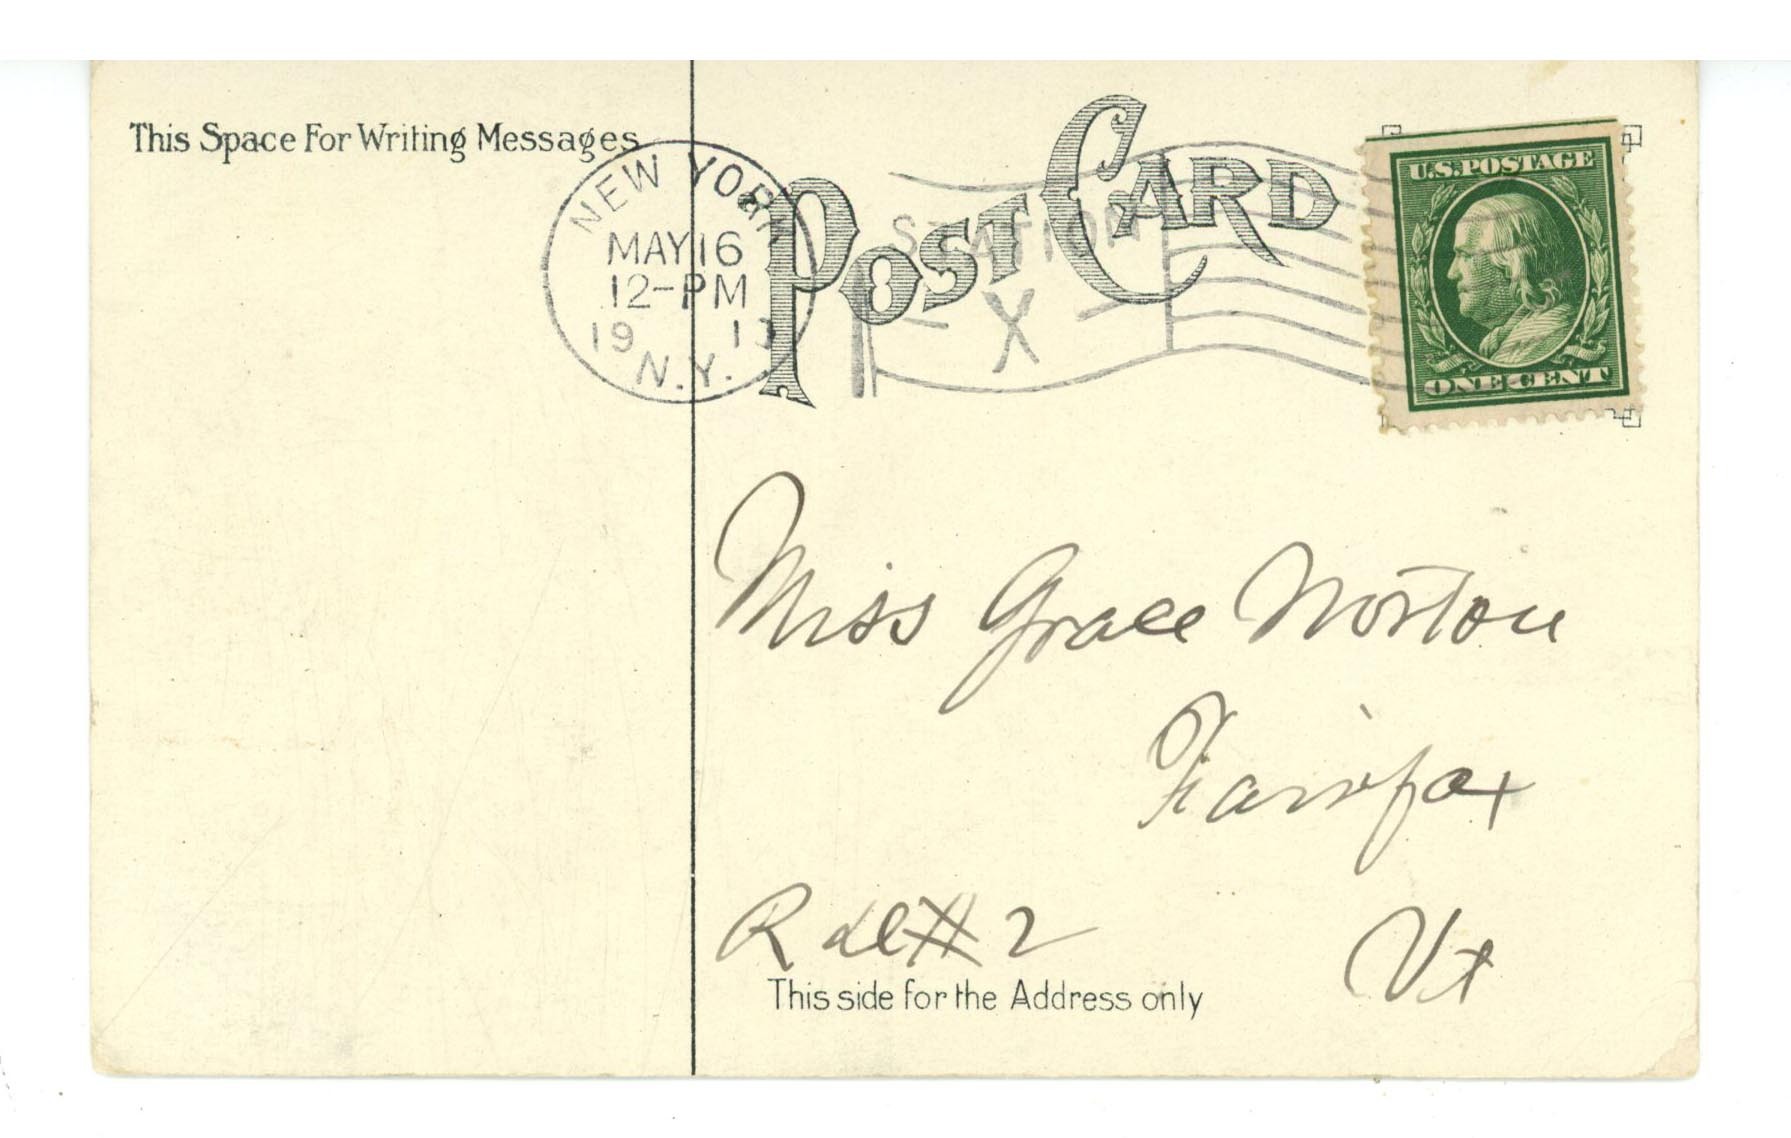 This Space For Writing Messages
POST CARD
NEW YORK
MAY 16
12-PM
19 13
N.Y.
STATION
X
U.S. POSTAGE
ONE CENT
Miss Grace Norton
Fairfax
R d #2
Vt
This side for the Address only